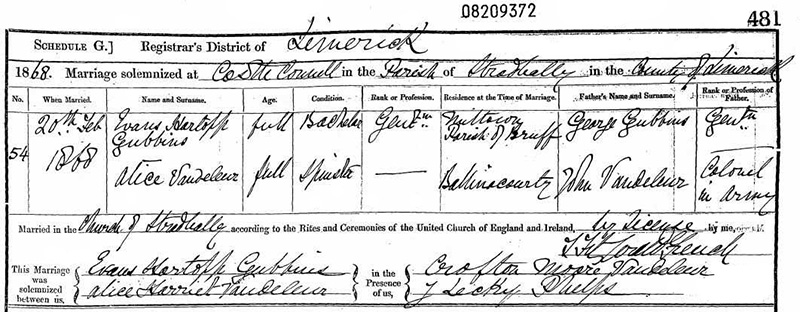 08209372
481
SCHEDULE G.] Registrar's District of Limerick
1868. Marriage solemnized at Castle Connell in the Parish of Stradbally in the County of Limerick
No. When Married. Name and Surname. Age. Condition. Rank or Profession. Residence at the Time of Marriage. Father's Name and Surname. Rank or Profession of Father.
54 20th Feb 1868 Evans Hartopp Gubbins full Bachelor Gentn Parish of Bruff George Gubbins Gentn
Alice Vandeleur full Spinster — Ballinacourty John Vandeleur Colonel in Army
Married in the Church of Stradbally according to the Rites and Ceremonies of the United Church of England and Ireland, by License by me,
This Marriage was solemnized between us, Evans Hartopp Gubbins in the Presence of us, Crofton Moore Vandeleur
Alice Harriet Vandeleur J Lecky Phelps